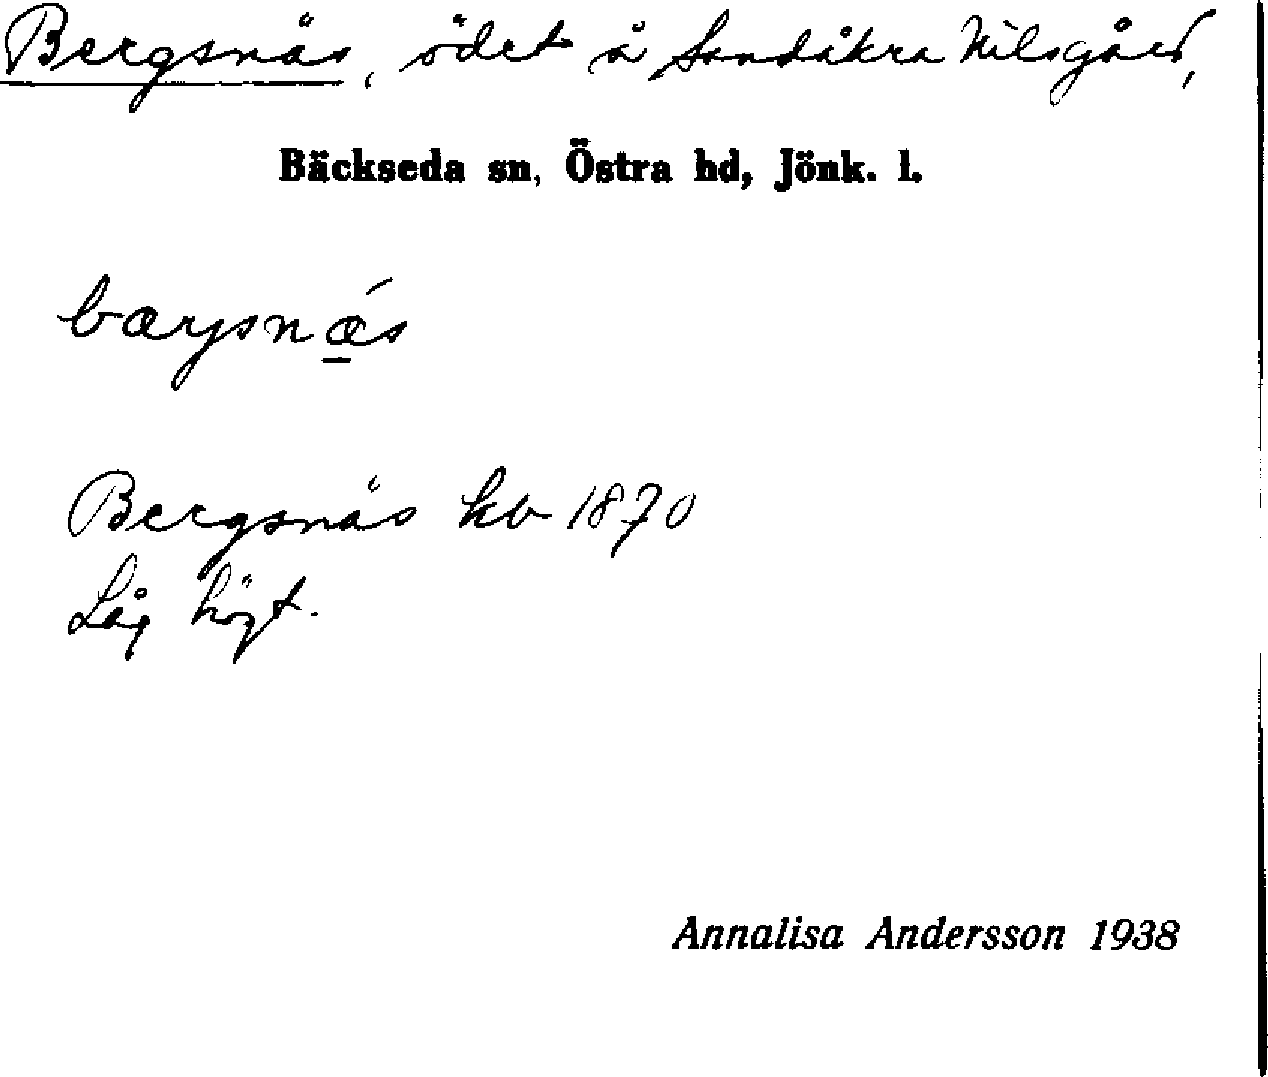 Bergsnäs, ödet å Sandåkra Nilsgård,
Bäckseda sn, Östra hd, Jönk. l.
bærjsnæ´s
Bergsnäs kb 1870
Låg högt.
Annalisa Andersson 1938